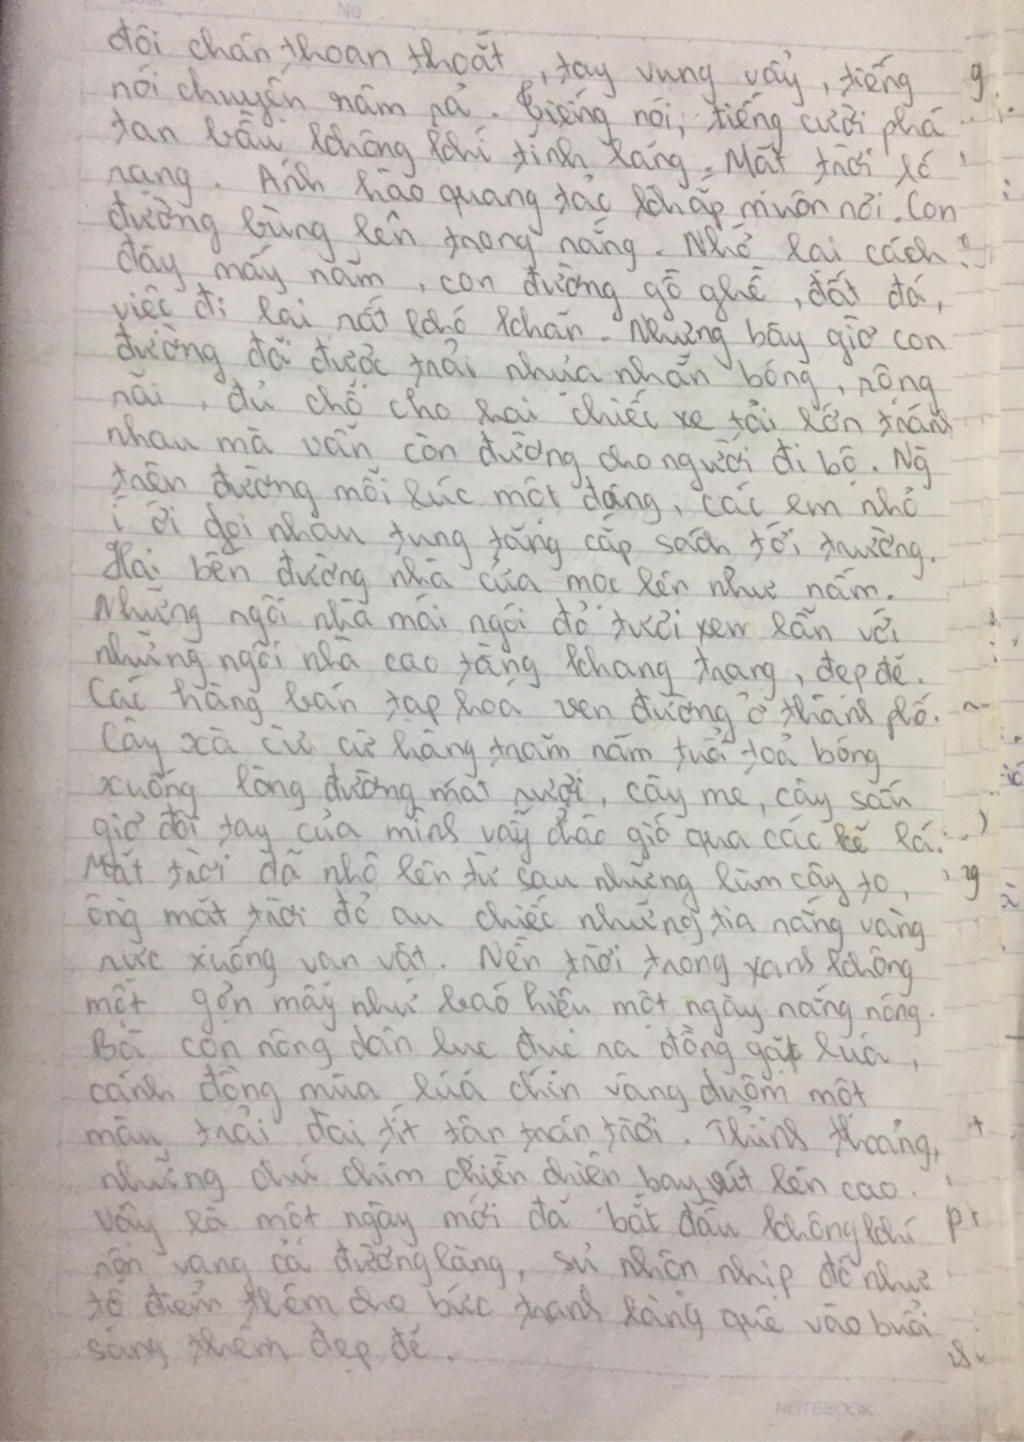 đôi chân thoan thoắt, tay vung vẩy, tiếng
nói chuyện râm rả. Tiếng nói, tiếng cười phá
tan bầu không khí tĩnh lặng. Mặt trời ló
rạng. Ánh hào quang tác khắp muôn nơi. Con
đường bừng lên trong nắng. Nhớ lại cách
đây mấy năm, con đường gồ ghề, đất đá,
việc đi lại rất khó khăn. Nhưng bây giờ con
đường đã được trải nhựa nhẵn bóng, rộng
rãi, đủ chỗ cho hai chiếc xe tải lớn tránh
nhau mà vẫn còn đường cho người đi bộ. Ng
trên đường mỗi lúc một đông, các em nhỏ
í ới gọi nhau tung tăng cắp sách tới trường.
Hai bên đường nhà cửa mọc lên như nấm.
Những ngôi nhà mái ngói đỏ tươi xen lẫn với
những ngôi nhà cao tầng khang trang, đẹp đẽ.
Các hàng bán tạp hoá ven đường ở thành phố.
Cây xà cừ cừ hàng trăm năm tuổi toả bóng
xuống lòng đường mát rượi, cây me, cây sấu
giơ đôi tay của mình vẫy chào gió qua các kẽ lá.
Mặt trời đã nhô lên từ sau những lùm cây to,
ông mặt trời đỏ au chiếc những tia nắng vàng
rực xuống vạn vật. Nền trời trong xanh không
một gợn mây như báo hiệu một ngày nắng nóng.
Bà con nông dân lục đục ra đồng gặt lúa,
cánh đồng mùa lúa chín vàng duộm một
màu trải dài tít tận trán trời. Thỉnh thoảng,
những chú chim chiền chiện bay vút lên cao.
Vậy là một ngày mới đã bắt đầu không khí
rộn vang cả đường làng, sự nhộn nhịp đó như
tô điểm thêm cho bức tranh làng quê vào buổi
sáng thêm đẹp đẽ.
NOTEBOOK